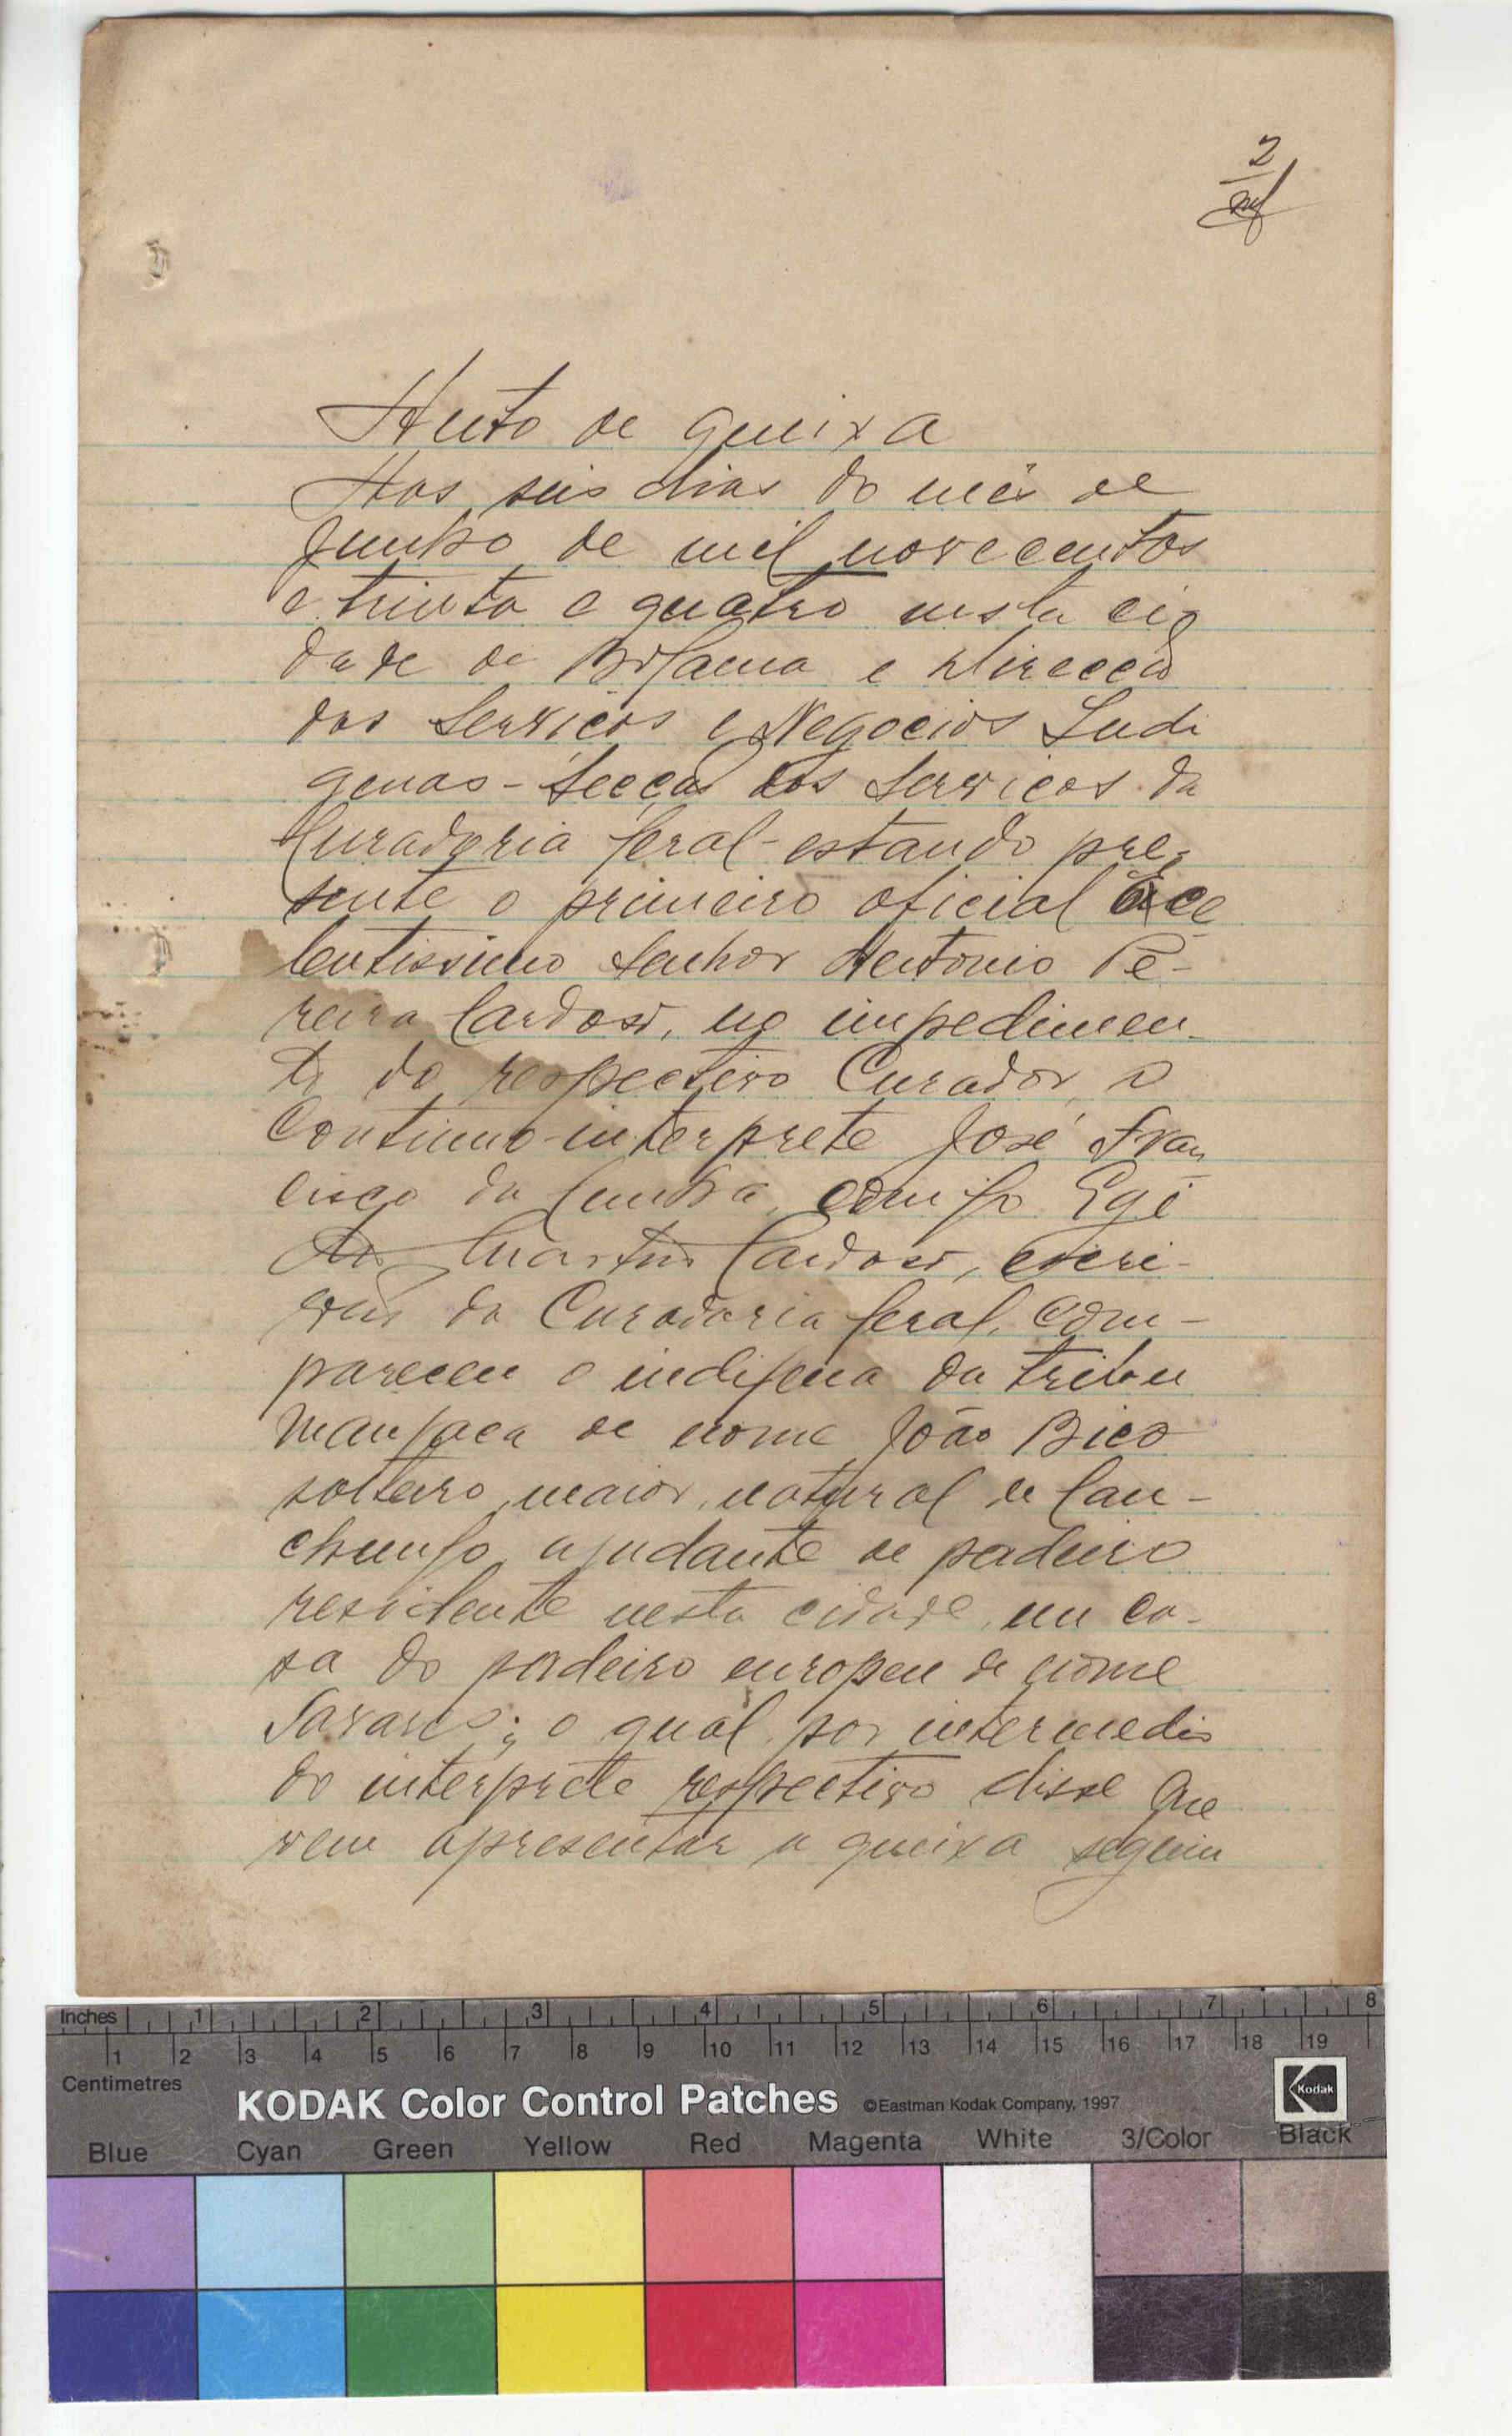 2
Auto de queixa
Aos seis dias do mês de
Junho de mil novecentos
e trinta e quatro nesta ci
dade de Bolama e Direccão
dos Serviços e Negocios Indi
genas - Secção dos Serviços da
Curadoria Geral - estando pre-
sente o primeiro oficial Exce
lentissimo Senhor Antonio Pe-
reira Cardoso, no impedimen-
to do respectivo Curador, o
Continuo-interprete José Fran
cisco da Cunha, comigo Egi
dio Martins Cardoso, escri-
vão da Curadoria Geral, com-
pareceu o indigena da tribu
manjaca de nome João Bico
solteiro, maior, natural de Can-
chungo, ajudante de padeiro
residente nesta cidade, em ca-
sa do padeiro europeu de nome
Tavares; o qual por intermedio
do interprete respectivo disse que
vem apresentar a queixa seguin
Inches 1 2 3 4 5 6 7 8
1 2 3 4 5 6 7 8 9 10 11 12 13 14 15 16 17 18 19
Centimetres
KODAK Color Control Patches ©Eastman Kodak Company, 1997
Kodak
Blue Cyan Green Yellow Red Magenta White 3/Color Black